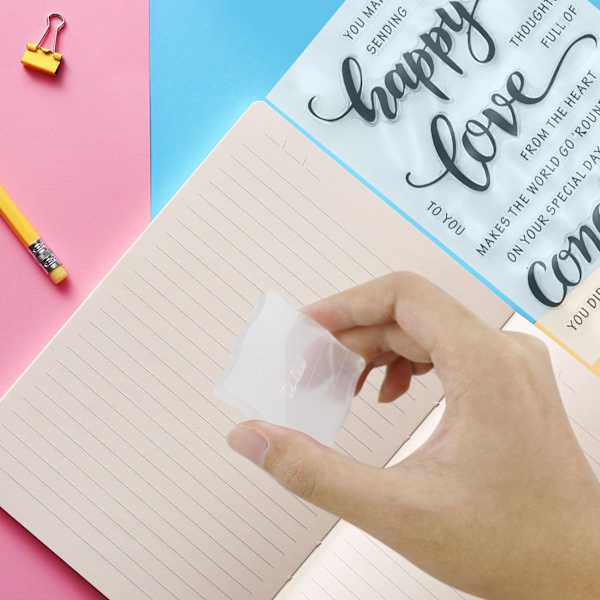 YOU MA
SENDING
happy
THOUGHT
FULL OF
love
FROM THE HEART
TO YOU
MAKES THE WORLD GO 'ROUN
ON YOUR SPECIAL DAY
cong
YOU DI